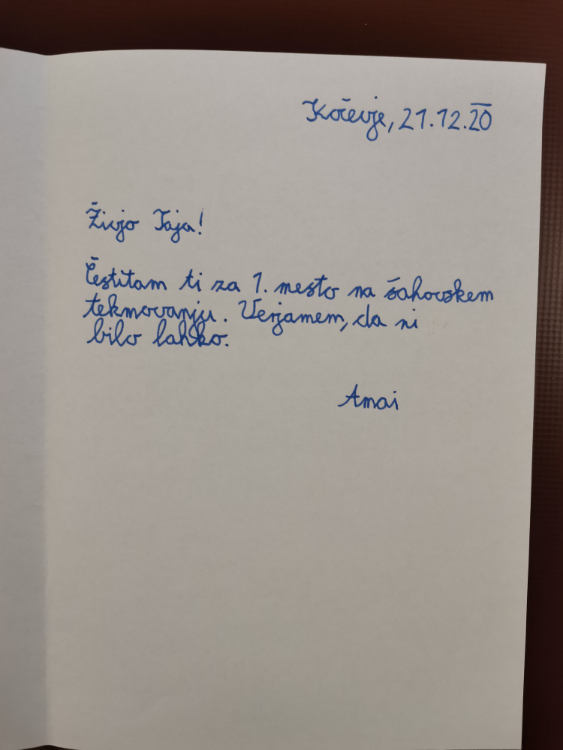 Kočevje, 21.12.20
Živjo Taja!
Čestitam ti za 1. mesto na šahovskem
tekmovanju. Verjamem, da ni
bilo lahko.
Amai